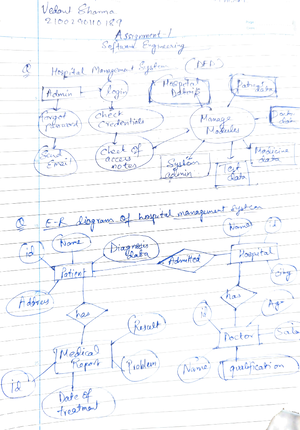 Assignment 1
Software Engineering
Q Hospital Management System (DFD)
Admin
login
Hospital
Manage
Modules
Check
Credentials
Forgot
Send
Email
Check of
access
System
admin
Medicine
data
data
Q E-R diagram of hospital management system
id
Name
Diagnosis
data
Admitted
Hospital
Name
id
Patient
Address
has
has
City
id
Age
Result
Doctor
Medical
Report
Problem
Name
qualification
id
Date of
treatment